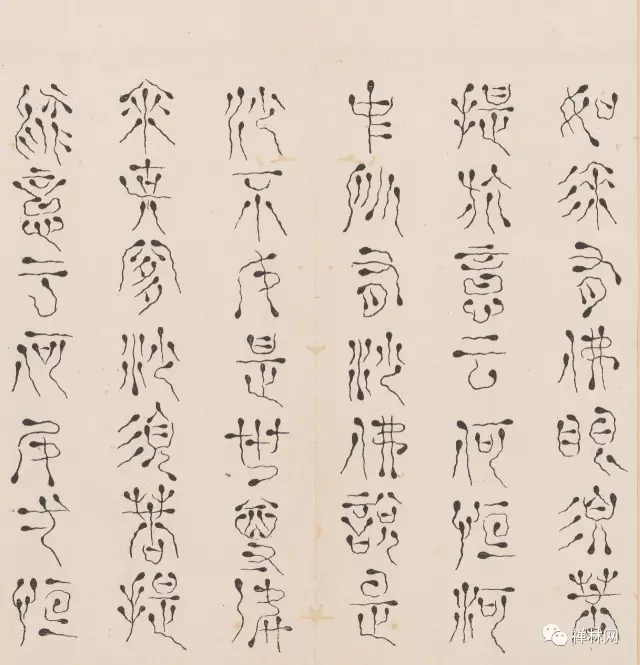 如來有佛眼須菩
提於意云何恒河
中所有沙佛說是
沙不如是世尊如
來說是沙須菩提
於意云何如一恒
禅林网